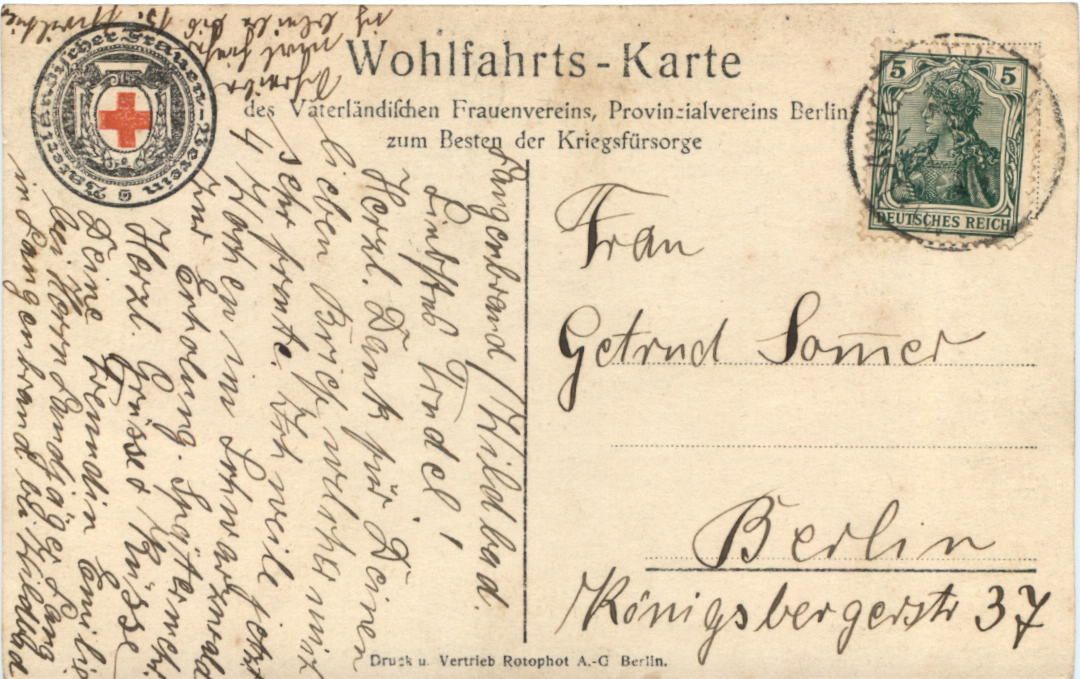 Wohlfahrts-Karte
des Vaterländischen Frauenvereins, Provinzialvereins Berlin
zum Besten der Kriegsfürsorge
Vaterländischer Frauen-Verein
5 5
DEUTSCHES REICH
Frau
Getrud Som̄er
Berlin
Königsbergerstr 37
Langenbrand/Wildbad.
Liebstes Trudel!
Herzl. Dank für Deinen
lieben Brief welcher mich
sehr freute. Ich weile jetzt
4 Wochen im Schwarzwald
zur Erholung. Später mehr.
Herzl. Grüsse u Küsse
Deine Freundin Emilie
bei Herrn Landjäger Lang
in Langenbrand b. Wildbad
Druck u. Vertrieb Rotophot A.-G Berlin.